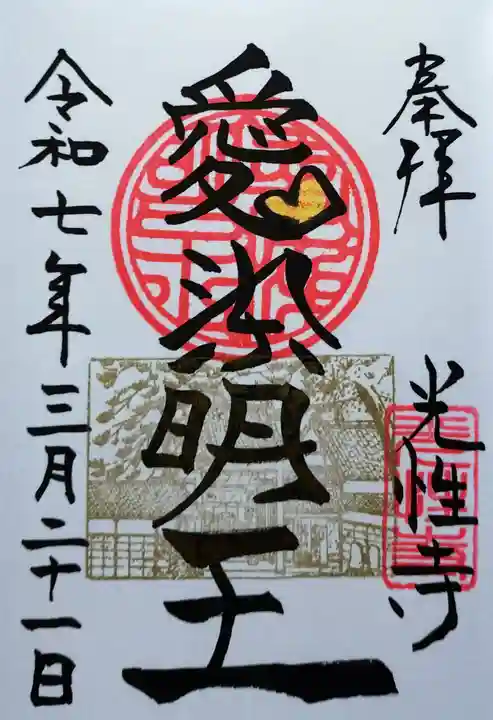 奉拝
光性寺
愛染明王
令和七年三月二十一日